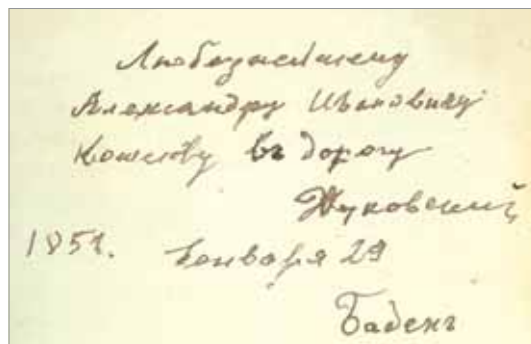 Любезнейшему
Александру Ивановичу
Кошелеву въ дорогу
Жуковский
1851. Генваря 29
Баденъ